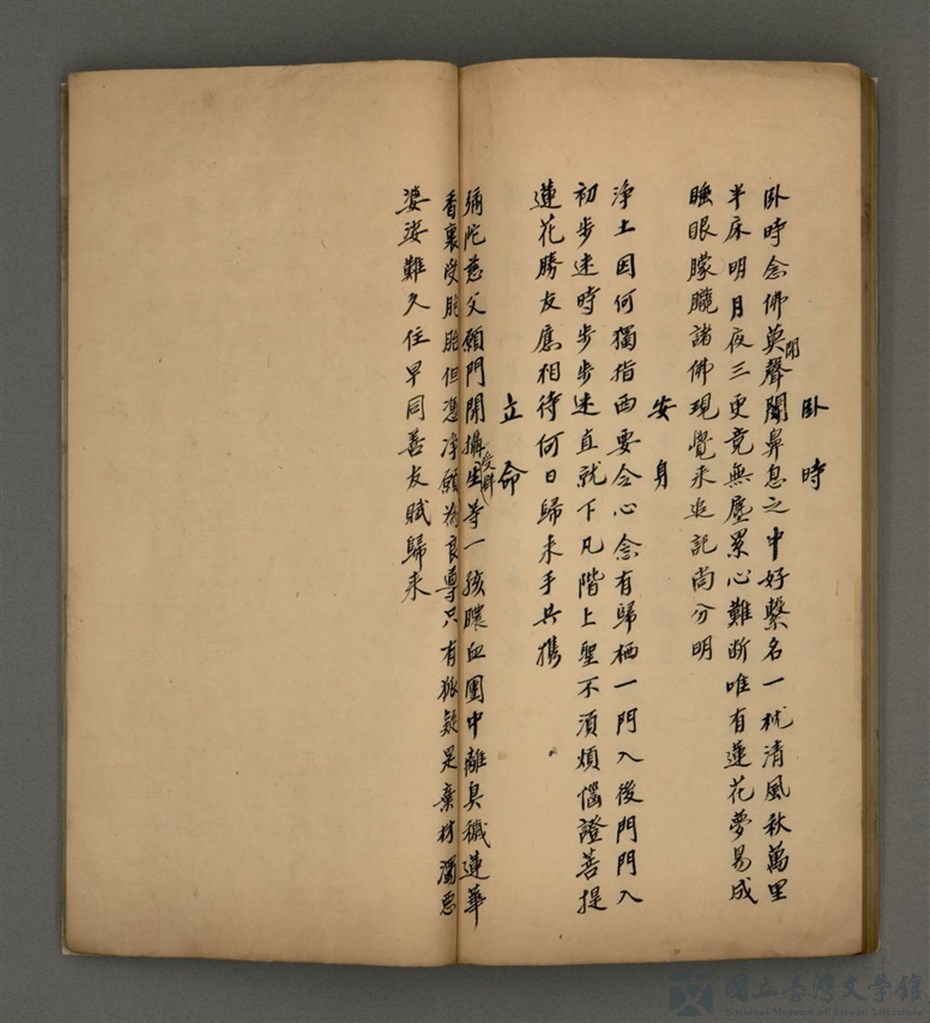 卧時
卧時念佛莫聲閙聞鼻息之中好繫名一枕清風秋萬里
半床明月夜三更竟無塵累心難断唯有蓮花夢易成
睡眼朦朧諸佛現覺来追記尚分明
安身
淨土因何獨指西要令心念有歸栖一門入後門門入
初步迷時步步迷直就下凡階上聖不須煩惱證菩提
蓮花勝友應相待何日歸来手共攜
立命
彌陀慈父願門開攝生等一孩膿血團中離臭穢蓮華
香裏受胞胎但憑凈願為良導只有狐疑是棄材濁惡
婆娑難久住早同善友賦歸来
國立臺灣文學館
National Museum of Taiwan Literature